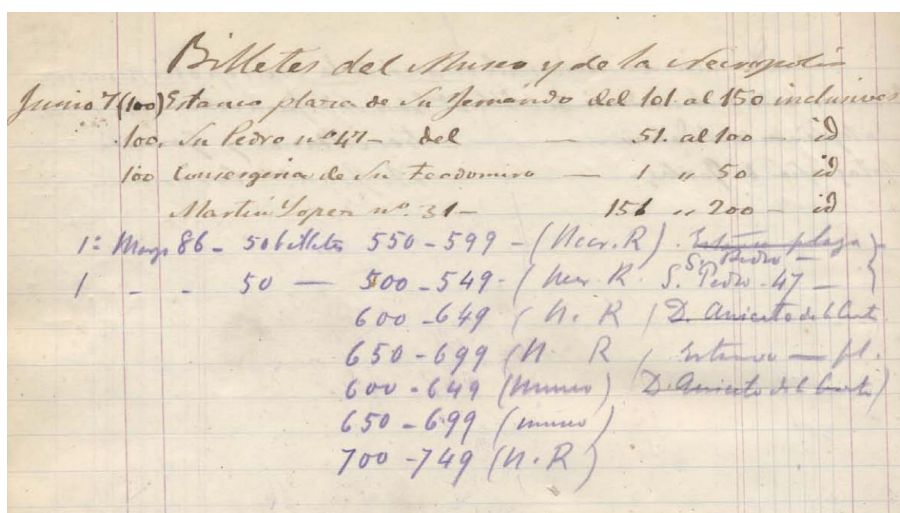 Billetes del Museo y de la Necropolis
Junio 7 (100) Estanco plaza de Sn Fernando del 101. al 150 inclusives
100. Sn Pedro nº 47 - del — 51. al 100 — id
100 Consergeria de Sn Teodomiro — 1 " 50 id
Martin Lopez nº. 31 — 151 " 200 — id
1º Mayo 86 - 50 billetes 550 - 599 - (Necr. R). Estanco plaza -
Sn. Pedro -
1 - - 50 — 500 - 549 - (Necr. R. S. Pedro - 47 —
600 - 649 (N. R (D. Aniceto del Cast
650 - 699 (N R, Estanco — pl.
600 - 649 (museo) D. Aniceto del)
650 - 699 (museo)
700 - 749 (N. R)